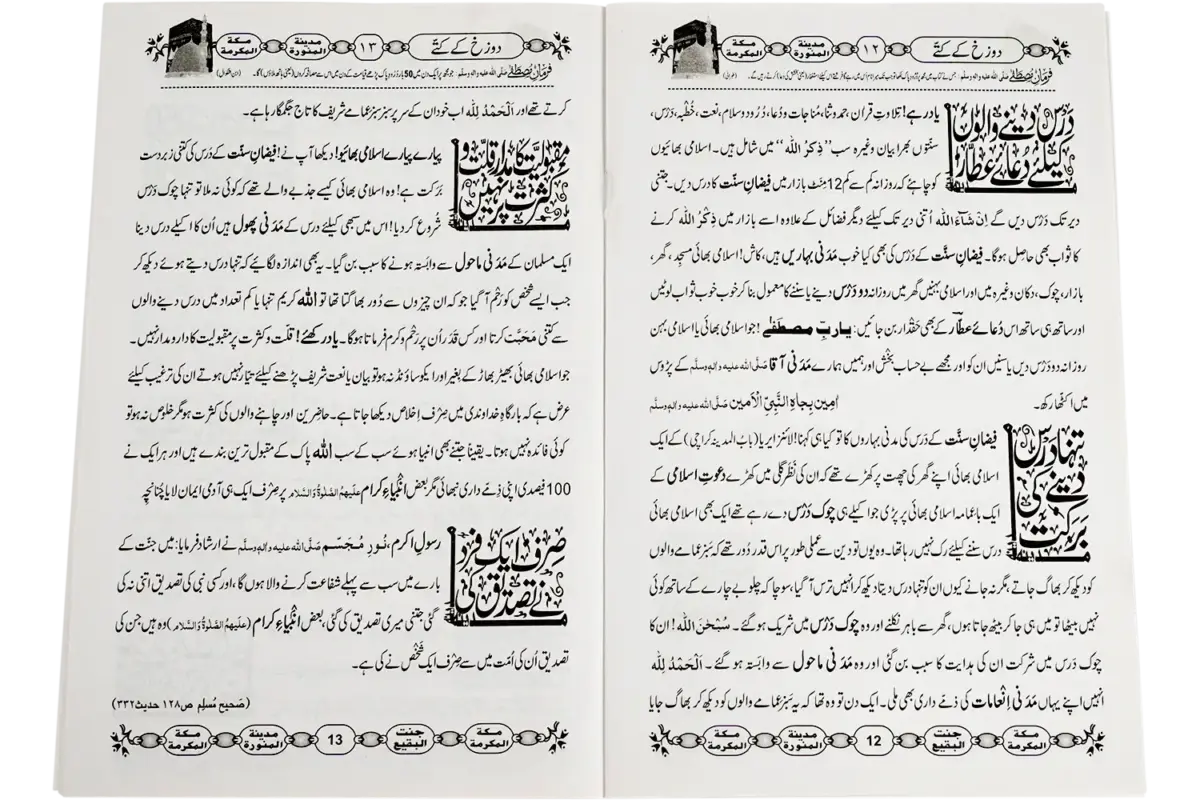 دوزخ کے کتّے
۱۲
مدینۃ المنورۃ
مکۃ المکرمۃ
فرمانِ مصطَفٰے صلَّی اللہ علیہ والہٖ وسلَّم : جس نے کتاب میں مجھ پر دُرُودِ پاک لکھا تو جب تک میرا نام اس میں رہے گا فرشتے اس کیلئے استغفار (یعنی بخشش کی دعا) کرتے رہیں گے۔ (طبرانی)
دَرْس دینے والوں کیلئے دعائے عطّار
یاد رہے! تِلاوتِ قراٰن، حمد و ثنا، مُناجات و دُعا، دُرُود و سلام، نعت، خُطبہ، دَرْس،
سنّتوں بھرا بیان وغیرہ سب ’’ذِکرُ اللہ‘‘ میں شامل ہیں۔ اسلامی بھائیوں
کو چاہئے کہ روزانہ کم سے کم 12 مِنَٹ بازار میں فیضانِ سنّت کا درس دیں۔ جتنی
دیر تک دَرْس دیں گے اِنْ شَآءَ اللہ اُتنی دیر تک کیلئے دیگر فضائل کے علاوہ اسے بازار میں ذِکْرُ اللہ کرنے
کا ثواب بھی حاصل ہوگا۔ فیضانِ سنّت کے دَرْس کی بھی کیا خوب مَدَنی بہاریں ہیں، کاش! اسلامی بھائی مسجِد، گھر،
بازار، چوک، دکان وغیرہ میں اور اسلامی بہنیں گھر میں روزانہ دو دَرْس دینے یا سننے کا معمول بنا کر خوب خوب ثواب لوٹیں
اور ساتھ ہی ساتھ اس دُعائے عطّار کے بھی حقدار بن جائیں: یا ربِّ مصطَفٰے! جو اسلامی بھائی یا اسلامی بہن
روزانہ دو دَرْس دیں یا سنیں ان کو اور مجھے بے حساب بخْش اور ہمیں ہمارے مَدَنی آقا صلَّی اللہ علیہ والہٖ وسلَّم کے پڑوس
میں اکٹھا رکھ۔ اٰمِین بِجاہِ النَّبِیِّ الْاَمین صلَّی اللہ علیہ والہٖ وسلَّم
تنہا دَرْس دینے کی بَرَکت
فیضانِ سنّت کے دَرْس کی مدنی بہاروں کا تو کیا ہی کہنا! لائنز ایریا (بابُ المدینہ کراچی) کے ایک
اسلامی بھائی اپنے گھر کی چھت پر کھڑے تھے کہ ان کی نَظَر گلی میں کھڑے دعوتِ اسلامی کے
ایک باعمامہ اسلامی بھائی پر پڑی جو اکیلے ہی چوک دَرْس دے رہے تھے ایک بھی اسلامی بھائی
درس سننے کیلئے رک نہیں رہا تھا۔ وہ یوں تو دین سے عملی طور پر اس قدر دُور تھے کہ سَبْز عمامے والوں
کو دیکھ کر بھاگ جاتے، مگر نہ جانے کیوں ان کو تنہا درس دیتا دیکھ کر انہیں ترس آگیا، سوچا کہ چلو بے چارے کے ساتھ کوئی
نہیں بیٹھا تو میں ہی جا کر بیٹھ جاتا ہوں، گھر سے باہر نکلے اور وہ چوک دَرْس میں شریک ہوگئے۔ سُبْحٰنَ اللہ! ان کا
چوک دَرس میں شرکت ان کی ہدایت کا سبب بن گئی اور وہ مَدَنی ماحول سے وابَستہ ہو گئے۔ اَلْحَمْدُ لِلّٰہ
انہیں اپنے یہاں مَدَنی اِنعامات کی ذِمّے داری بھی ملی۔ ایک دن تو وہ تھا کہ یہ سَبْز عمامے والوں کو دیکھ کر بھاگ جایا
مکۃ المکرمۃ
جنت البقیع
12
مدینۃ المنورۃ
مکۃ المکرمۃ
دوزخ کے کتّے
۱۳
مدینۃ المنورۃ
مکۃ المکرمۃ
فرمانِ مصطَفٰے صلَّی اللہ علیہ والہٖ وسلَّم : جو مجھ پر ایک دن میں 50 بار دُرُودِ پاک پڑھے قیامت کے دن میں اس سے مصافحہ کروں (یعنی ہاتھ ملاؤں) گا۔ (ابن بشکوال)
کرتے تھے اور اَلْحَمْدُ لِلّٰہ اب خود ان کے سر پر سبز سبز عمامے شریف کا تاج جگمگا رہا ہے۔
مقبولیت کا مدار قلّت و کثرت پر نہیں
پیارے پیارے اسلامی بھائیو! دیکھا آپ نے! فیضانِ سنّت کے دَرْس کی کتنی زبردست
بَرَکت ہے! وہ اسلامی بھائی کیسے جذبے والے تھے کہ کوئی نہ ملا تو تنہا چوک دَرْس
شُروع کر دیا! اس میں بھی کیلئے درس کے مَدَنی پھول ہیں اُن کا اکیلے درس دینا
ایک مسلمان کے مَدَنی ماحول سے وابَستہ ہونے کا سبب بن گیا۔ یہ بھی اندازہ لگائیے کہ تنہا درس دیتے ہوئے دیکھ کر
جب ایسے شخص کو رَحْم آگیا جو کہ ان چیزوں سے دُور بھاگتا تھا تو اللہ کریم تنہا یا کم تعداد میں درس دینے والوں
سے کتنی مَحَبَّت کرتا اور کس قَدَر اُن پر رَحْم و کرم فرماتا ہوگا۔ یاد رکھئے! قلّت و کثرت پر مقبولیت کا دارومدار نہیں۔
جو اسلامی بھائی بھیڑ بھاڑ کے بغیر اور ایکو ساؤنڈ نہ ہو تو بیان یا نعت شریف پڑھنے کیلئے تیّار نہیں ہوتے ان کی ترغیب کیلئے
عرض ہے کہ بارگاہِ خداوندی میں صِرْف اِخلاص دیکھا جاتا ہے۔ حاضِرین اور چاہنے والوں کی کثرت ہو مگر خلوص نہ ہو تو
کوئی فائدہ نہیں ہوتا۔ یقیناً جتنے بھی انبیا ہوئے سب کے سب اللہ پاک کے مقبول ترین بندے ہیں اور ہر ایک نے
100 فیصدی اپنی ذِمّے داری نبھائی مگر بعض انبیاءِ کرام علیہمُ الصَّلوٰۃُ وَالسَّلام پر صِرْف ایک ہی آدمی ایمان لایا چُنانچِہ
صِرْف ایک فرد نے تصدیق کی
رسولِ اکرم، نُورِ مُجَسَّم صلَّی اللہ علیہ والہٖ وسلَّم نے ارشاد فرمایا: میں جنّت کے
بارے میں سب سے پہلے شفاعت کرنے والا ہوں گا، اور کسی نبی کی تصدیق اتنی نہ کی
گئی جتنی میری تصدیق کی گئی، بعض انبیاءِ کرام (علیہمُ الصَّلوٰۃُ وَالسَّلام) وہ ہیں جن کی
تصدیق اُن کی اُمّت میں سے صِرْف ایک شَخْص نے کی ہے۔
(صَحِیح مُسلِم ص۱۲۸ حدیث۳۳۲)
مکۃ المکرمۃ
جنت البقیع
13
مدینۃ المنورۃ
مکۃ المکرمۃ